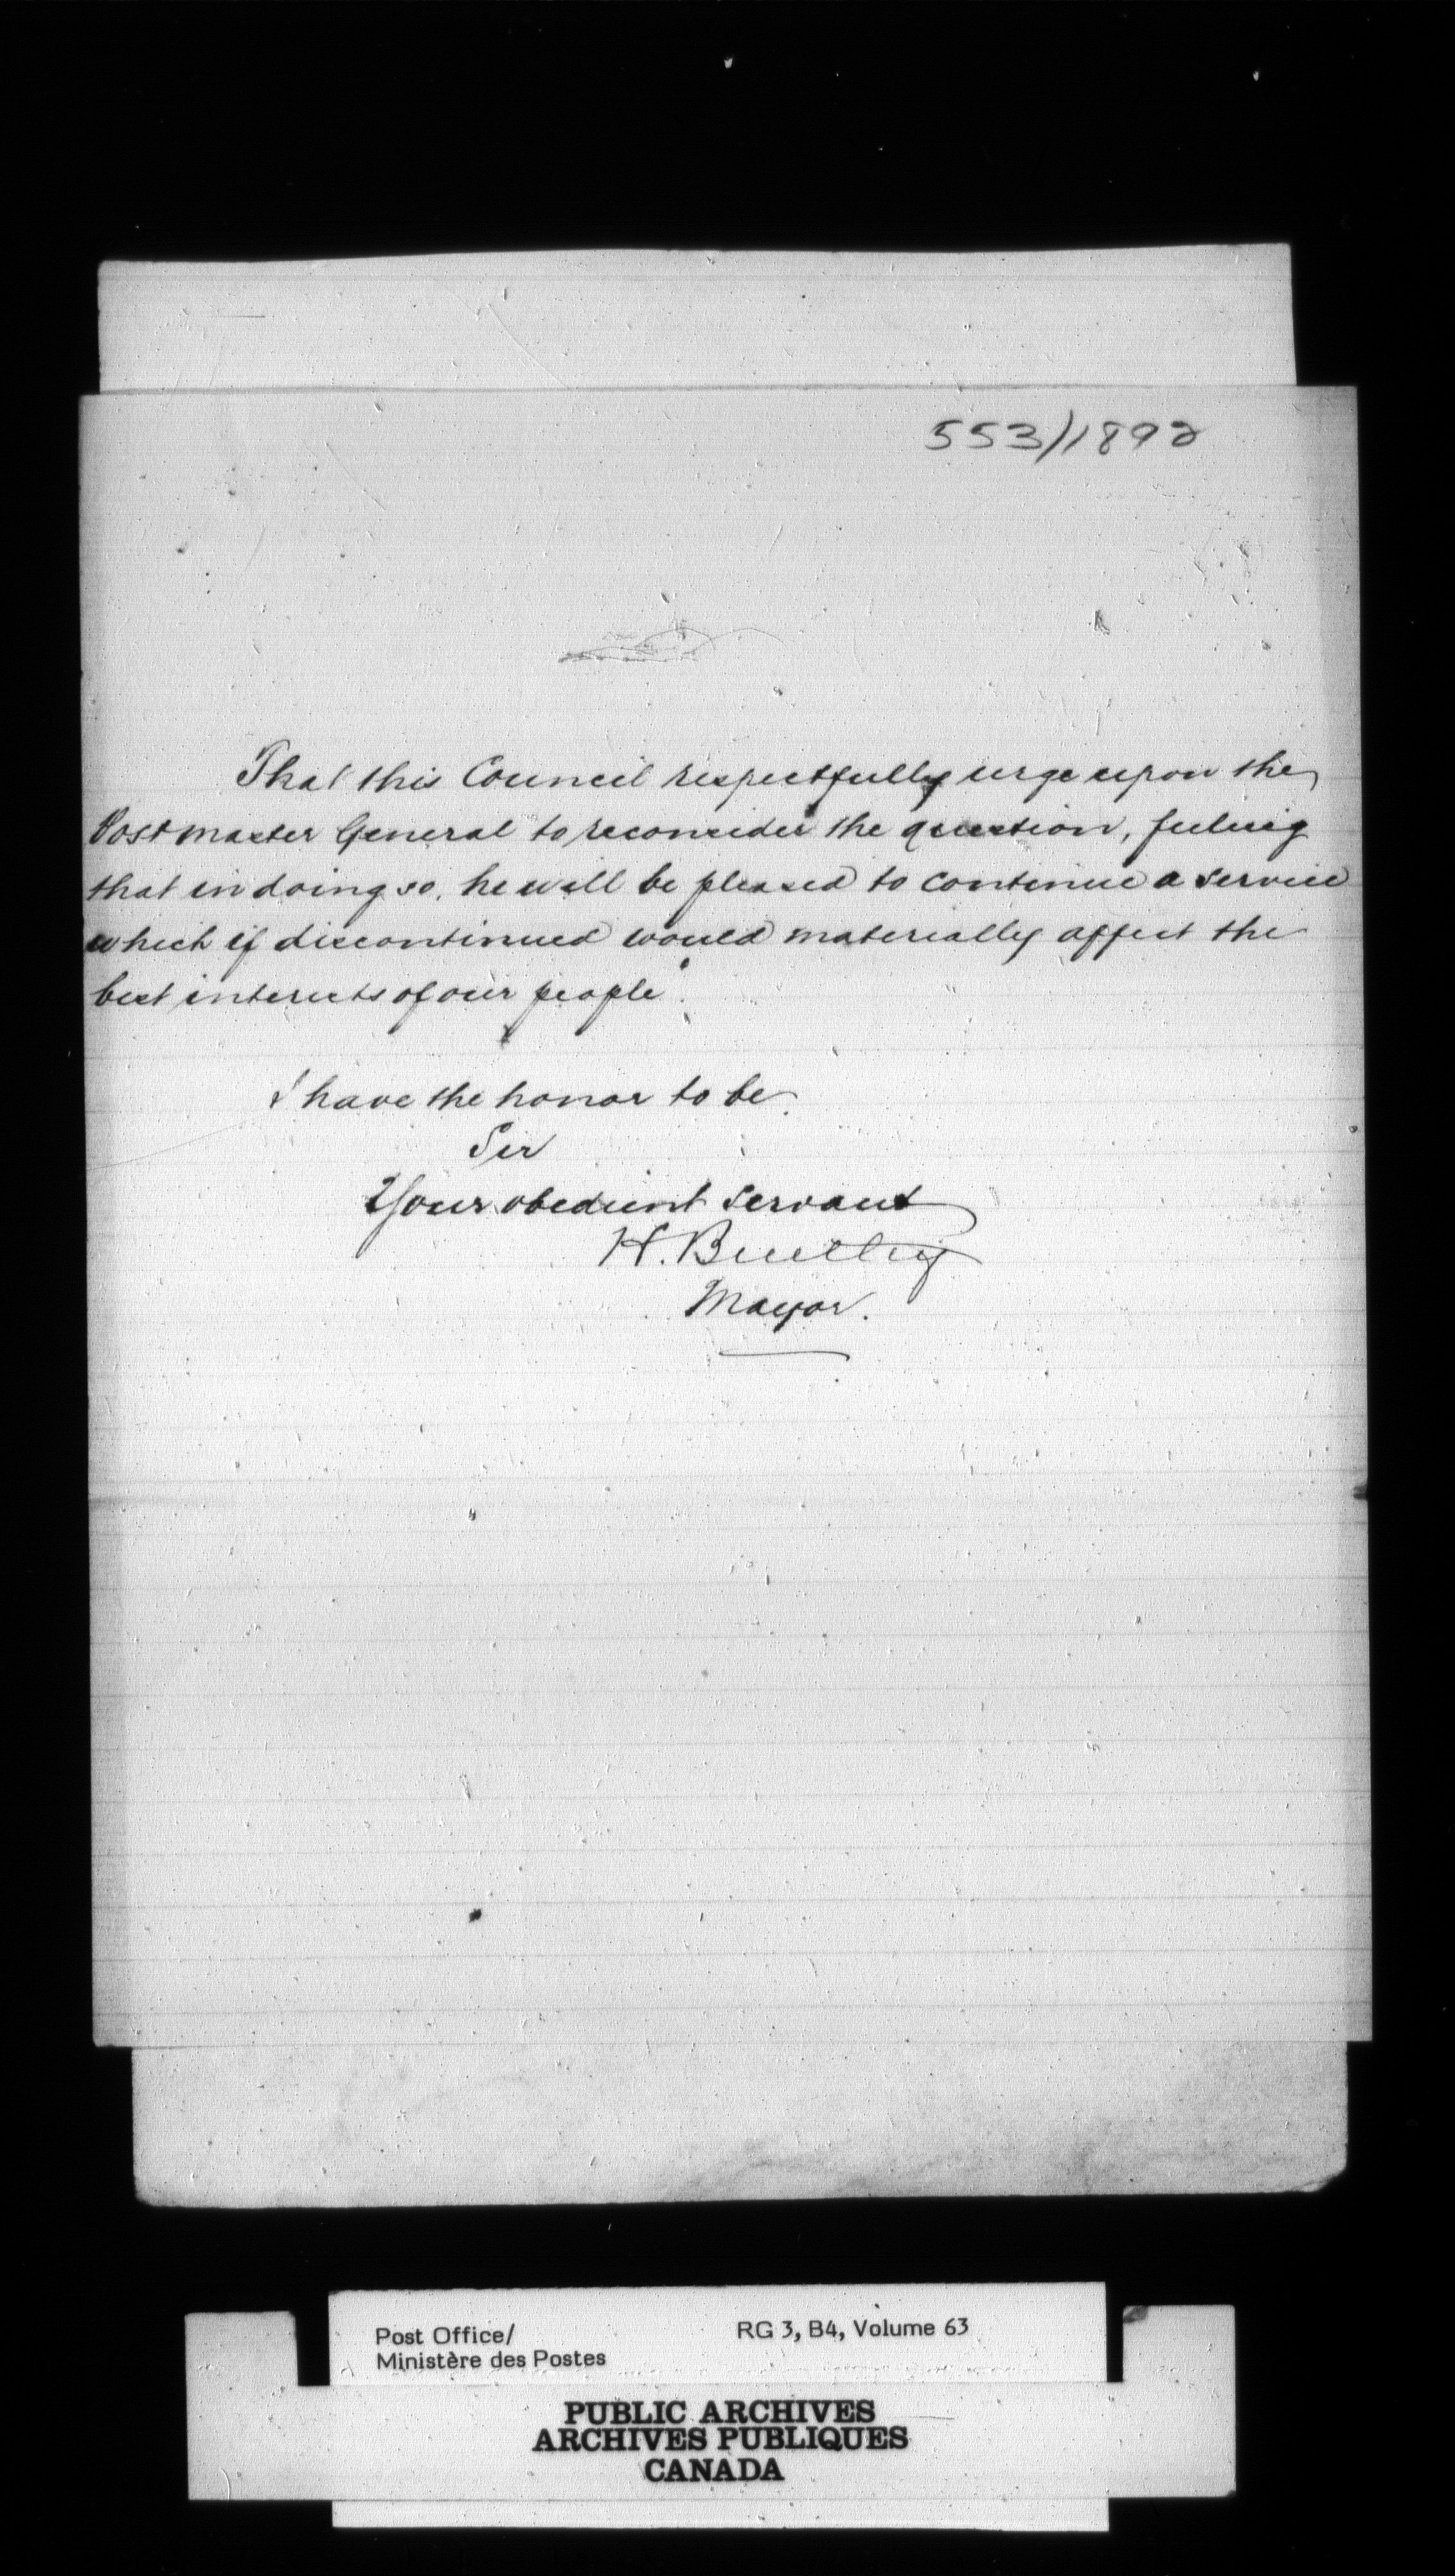 553/1892
That this Council respectfully urge upon the
Postmaster General to reconsider the question, feeling
that in doing so, he will be pleased to continue a service
which if discontinued would materially affect the
best interests of our people".
I have the honor to be
Sir
Your obedient servant
H.
Mayor.
Post Office/
Ministère des Postes
RG 3, B4, Volume 63
PUBLIC ARCHIVES
ARCHIVES PUBLIQUES
CANADA